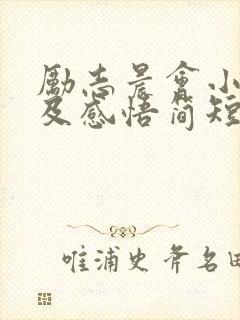 励志晨会小
及感悟简短
唯浦史斧名田